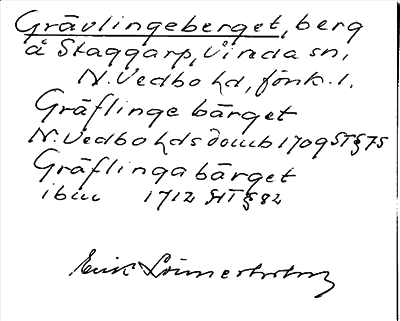 Grävlingeberget, berg
å Staggarp, Vinda sn,
N. Vedbo hd, Jönk. l.
Gräflinge bärget
N. Vedbo hds domb 1709 ST § 75
Gräflinga bärget
ibm 1712 HT § 82
Erik